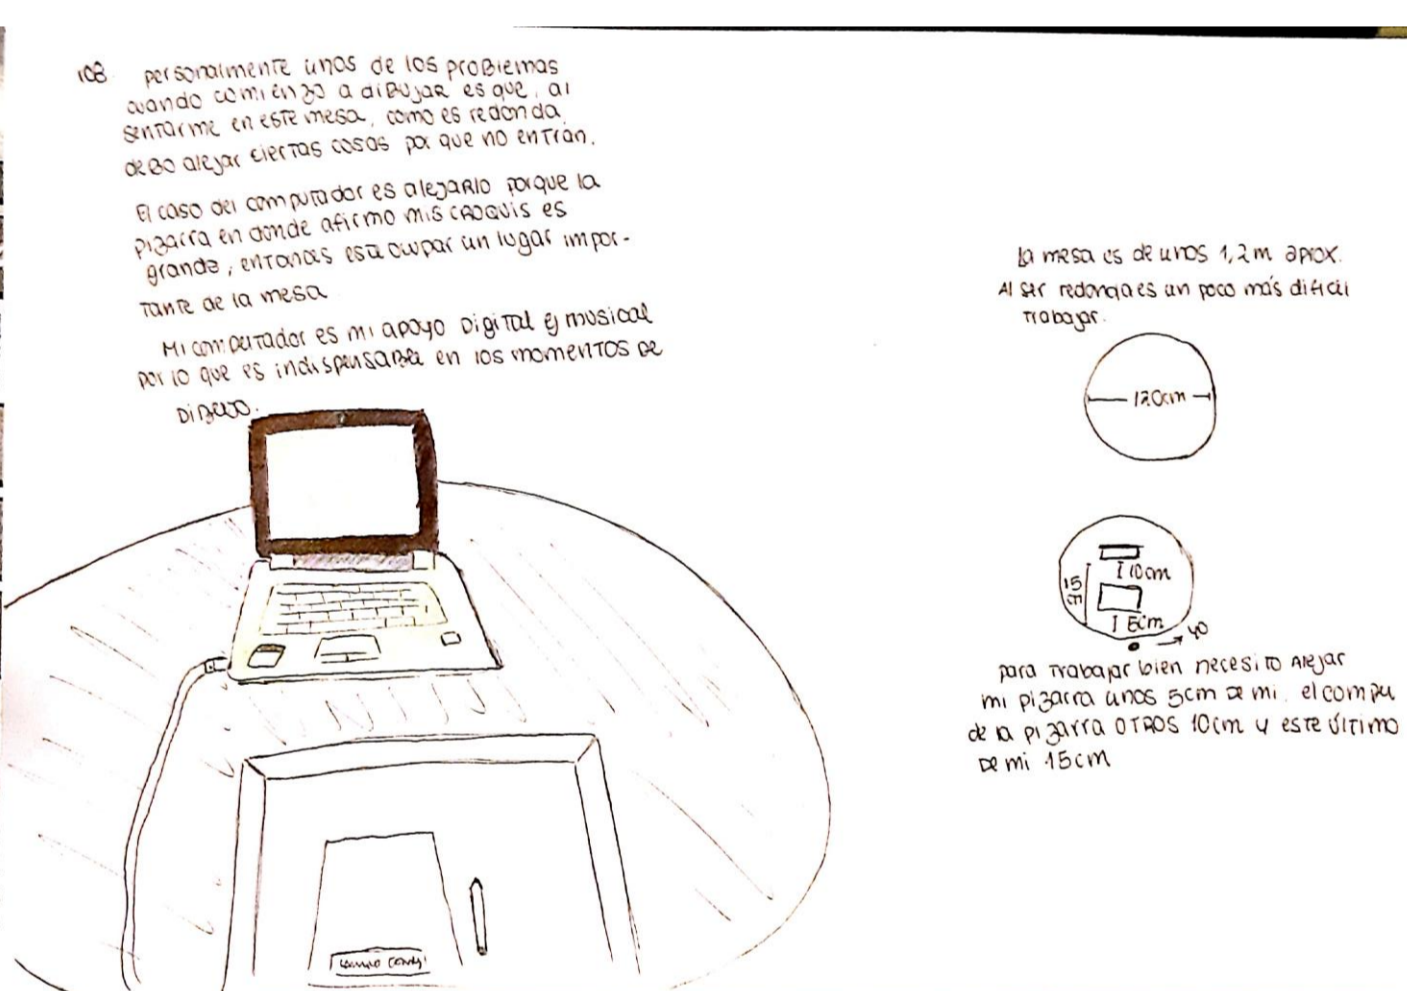 108. personalmente unos de los problemas
cuando comienzo a dibujar es que, al
sentarme en este mesa, como es redonda,
debo alejar ciertas cosas por que no entran.
El caso del computador es alejarlo porque la
pizarra en donde afirmo mis croquis es
grande, entonces esta ocupar un lugar impor-
tante de la mesa
Mi computador es mi apoyo digital y musical
por lo que es indispensable en los momentos de
dibujo.
la mesa es de unos 1,2m aprox.
Al ser redonda es un poco más dificil
trabajar.
120cm
10cm
15
cm
5cm
yo
para trabajar bien necesito alejar
mi pizarra unos 5cm de mi. el compu
de la pizarra otros 10cm y este último
de mi 15cm